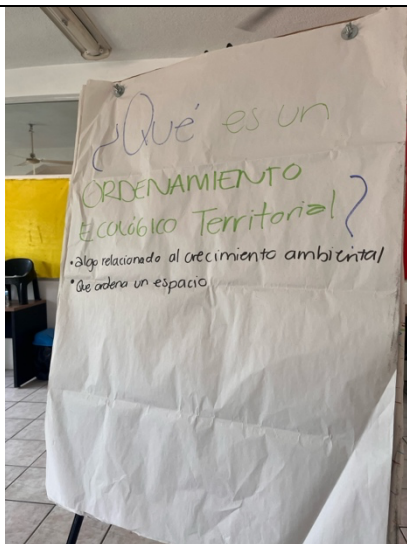 ¿Qué es un
ORDENAMIENTO
ECOLÓGICO Territorial?
• algo relacionado al crecimiento ambiental
• Que ordena un espacio